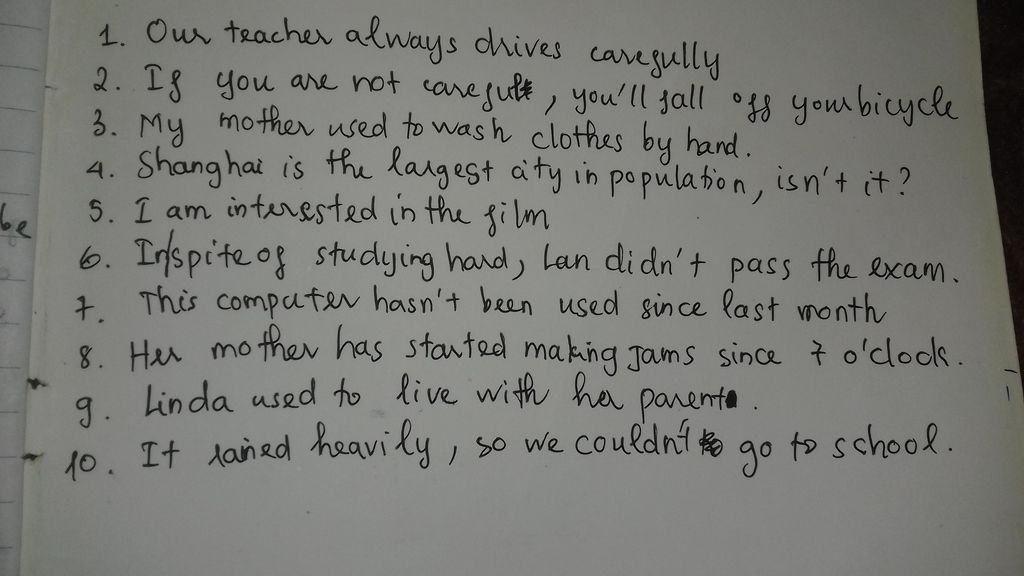 1. Our teacher always drives carefully
2. If you are not careful, you'll fall off your bicycle
3. My mother used to wash clothes by hand.
4. Shanghai is the largest city in population, isn't it?
5. I am interested in the film
be
6. In spite of studying hard, Lan didn't pass the exam.
7. This computer hasn't been used since last month
8. Her mother has started making jams since 7 o'clock.
9. Linda used to live with her parents.
10. It rained heavily, so we couldn't go to school.